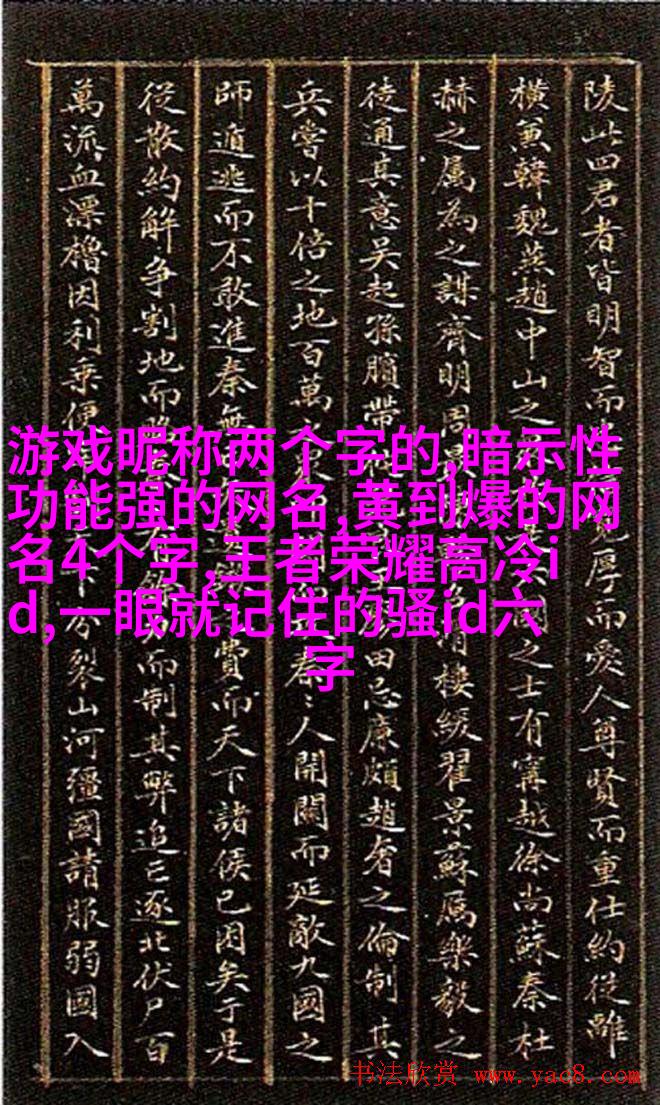 陵此四君者皆明智而厚而愛人尊賢而重仕約從離
橫兼韓魏燕趙中山之之士有寗越徐尚蘇秦杜
赫之屬為之謀齊明周樓緩翟景蘇厲樂毅之
徒通其意吳起孫臏帶田忌廉頗趙奢之倫制其
兵嘗以十倍之地百萬秦〻人開關而延敵九國之
師遁逃而不敢進秦無費而天下諸侯已困矣于是
從散約解爭割地而而制其弊追亡逐北伏尸百
萬流血漂櫓因利乘便分裂山河彊國請服弱國入
游戏昵称两个字的,暗示性
功能强的网名,黄到爆的网
名4个字,王者荣耀高冷i
d,一眼就记住的骚id六
字
书法欣赏 www.yac8.com